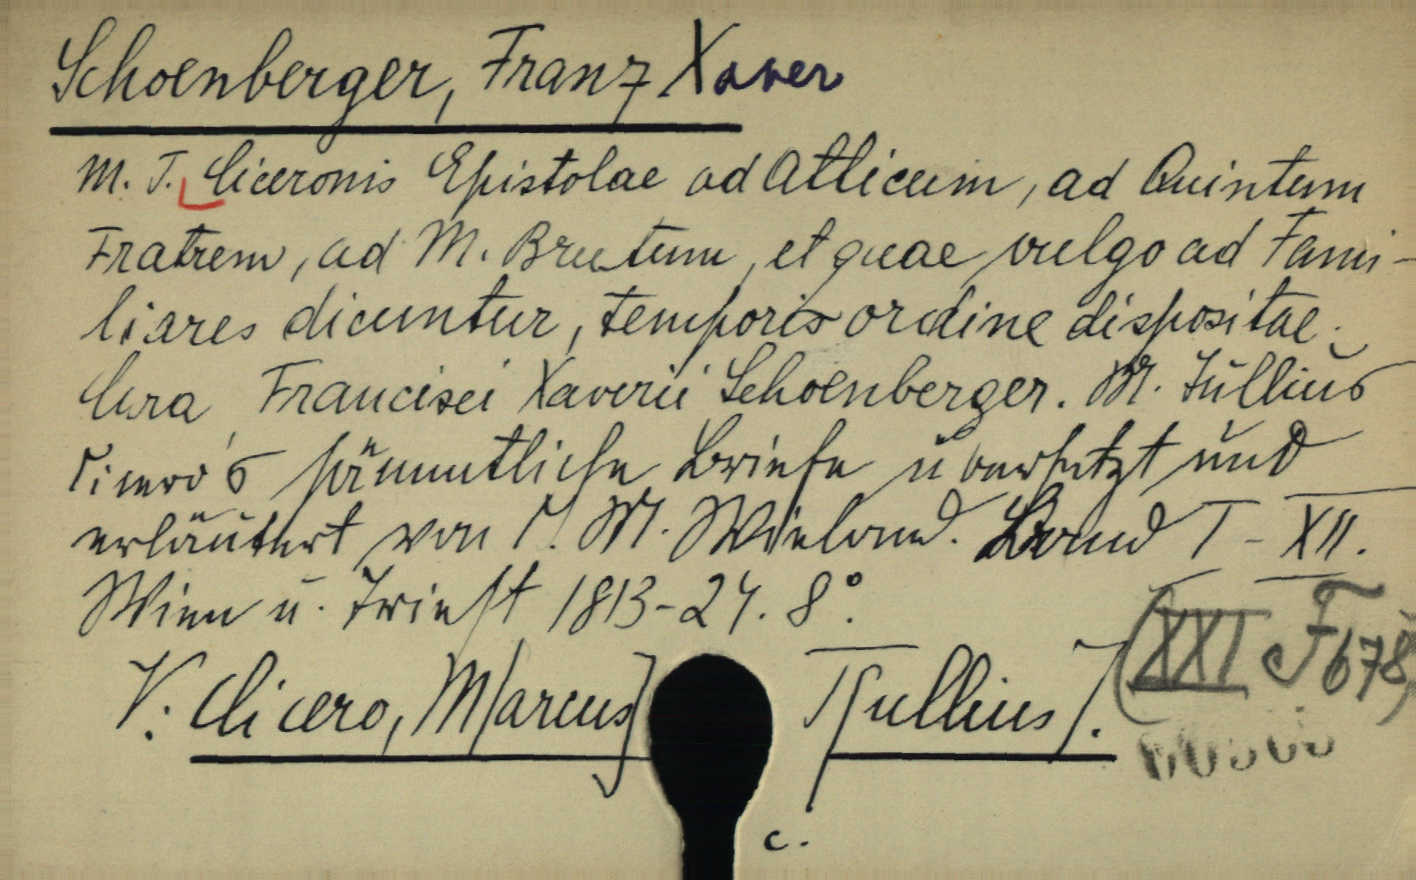 Schoenberger, Franz Xaver
M. T. Ciceronis Epistolae ad Atticum, ad Quintum
Fratrem, ad M. Brutum, et quae vulgo ad Fami-
liares dicuntur, temporis ordine dispositae.
Cura Francisci Xaverii Schoenberger. M. Tullius
Cicero's sämmtliche Briefe übersetzt und
erläutert von C. M. Wieland. Band I - XII.
Wien u. Triest 1813-24. 8°.
V: Cicero, M[arcus] T[ullius].
(XXI F 678)
c.